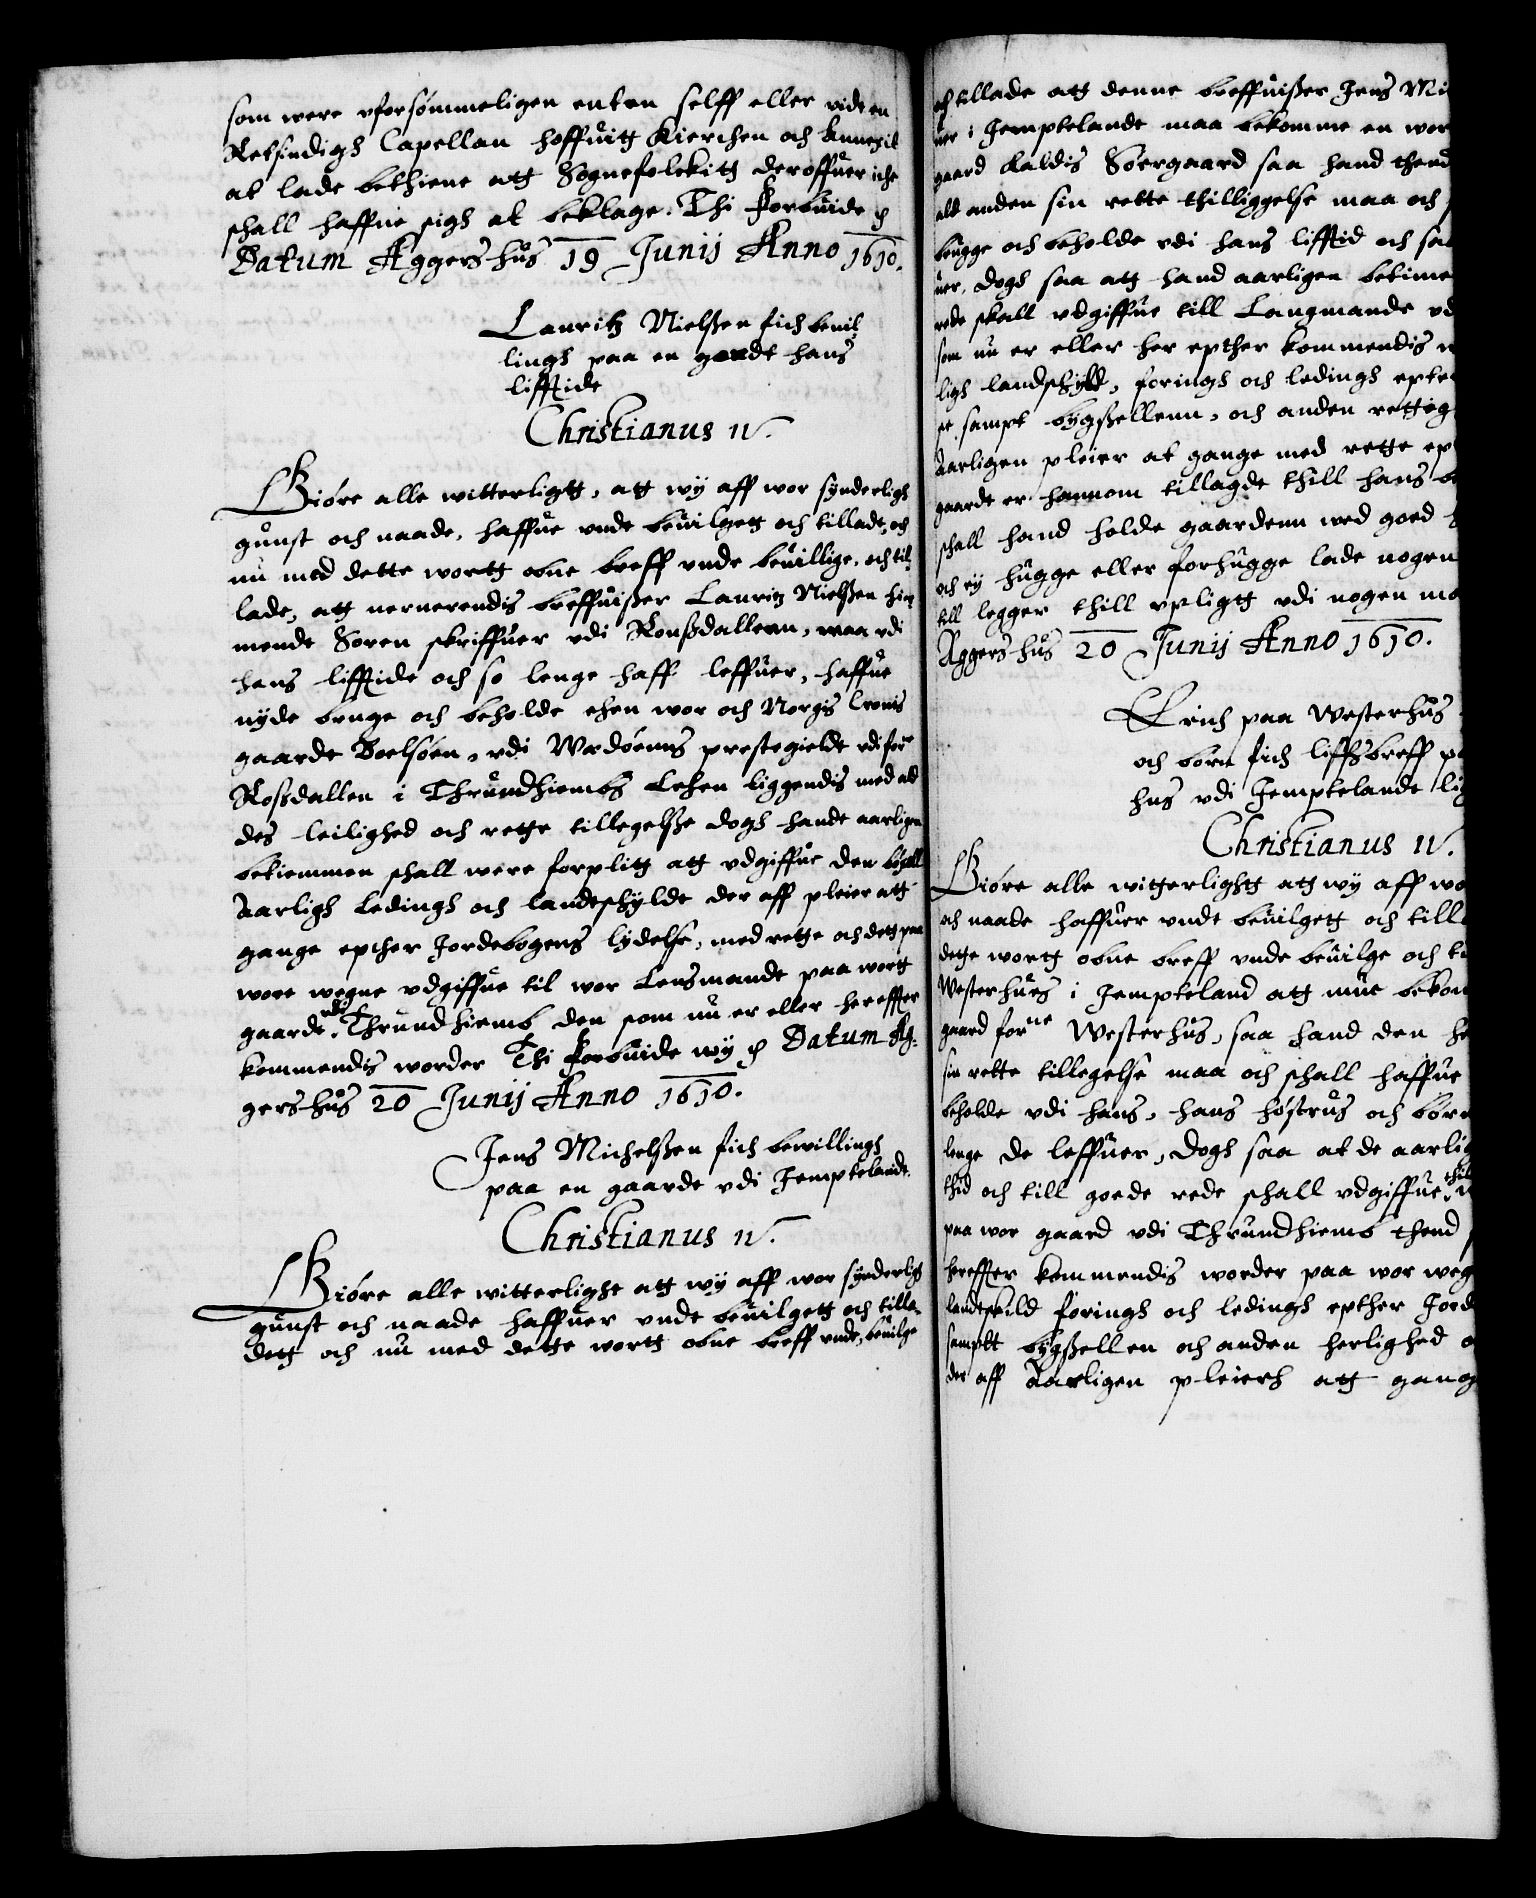 som were uforsömmeligen enten selff eller vidt en
Retsindigh Capellan hoffuitt Kierchen och Annexit
at lade bethiene att Sognefolckitt deroffuer iche
schall haffue sigh at beklage. Thi forbiude
Datum Aggershus 19 Junij Anno 1610.
Lauritz Nielsßen fich bevil
lingh paa en gaardt hans
lifftide
Christianus IV.
Giöre alle witterligtt, att wÿ aff wor sÿnderligh
gunst och naade, haffue undt beuilgett och tilladt, och
nu med dette wortt obne breff unde beuillige, och til
lade, att nernerendis breffuißer Lauritz Nielßen
mende Soren skriffuer udi Romßdallenn, maa udi
hans lifftide och so lenge haff leffuer, haffue
nÿde bruge och beholde ehen wor och Norgis Cronis
gaarde Boelsöen, udi Wedöenns prestegieldt udi forne
Roßdallen i Thrundhiembs Lehen liggendis med ald
des leilighed och rette tillegelße dogh hande aarligen
betiemmen schall were forplitt att udgiffue den
Aarligh Ledingh och landtschÿldt der aff pleier att
gange epther Jordebogens lÿdelse, med rette och dett paa
wore wegne udgiffue til wor Lensmandt paa wort
gaarde udi Thrundhiemb den som nu er eller hereffter
kommendis worder Thi forbiude wÿ Datum Ag-
gershus 20 Junij Anno 1610.
Jens Michelßen fich bewillingh
paa en gaarde udi Jemptelandt.
Christianus IV.
Giöre alle witterlighe att wÿ aff wor sÿnderligh
gunst och naade haffuer undt beuilgett och tilla-
dett och nu med dette wortt obne breff unde, beuilge
och tillade att denne breffuißer Jens Mi
i Jemptelandt maa bekomme en wor
gaard kaldis Söergaard saa hand thend
ald anden sin rette thilliggelse maa och
bugge och beholde udi hans lifftid och saa
dogh saa att hand aarligen betime
rede skall udgiffue till Langmande ud
som nu er eller her epther kommendis
ligh landschÿld, foringh och ledingh epte
sampt bÿgßellenn, och anden rettig
Aarligen pleier at gange med rette ep
gaardt er hannom tillagde thill hans be
schall hand holde gaardenn wed goed
och eÿ hugge eller forhugge lade nogen
till legger thill upligtt udi nogen ma
Aggershus 20 Junij Anno 1610.
Erich paa Westerhus
och börn fich liffsbreff pa
hus udi Jemptelandt lig
Christianus IV.
Giöre alle witterlightt att wÿ aff wo
och naade haffuer undt beuilgett och till
dette wortt obne breff unde beuilge och ti
Westerhues i Jempteland att mue bekom
gaard forne Westerhus, saa hand den
sin rette tillegelse maa och schall haffue
beholde udi hans, hans höstrus och börn
lenge de leffuer, Dogh saa at de aarlig
thid och till goede rede schall udgiffue thill
paa wor gaard udi Thrundhiemb thend
hereffter kommendis worder paa wor weg
landtskild föringh och ledingh epther Jord
samptt bÿgßellen och anden herlighed
der aff Aarligen pleierh att gang